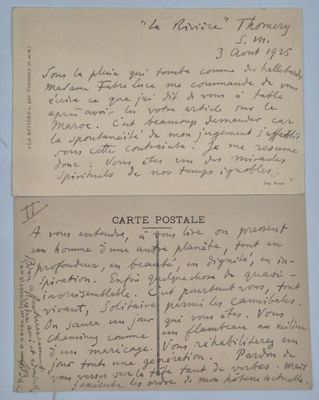 "La Rivière" Thomery
S. M.
3 Août 1925
Sous la pluie qui tombe comme des hallebardes,
Madame Fabre Luce me commande de vous
écrire ce que j'ai dit de vous à table
après avoir lu votre article sur le
Maroc. C'est beaucoup demander car
la spontanéité de mon jugement s'affaiblit
sous cette contrainte! Je me résume
donc: Vous êtes un des miracles
spirituels de nos temps ignobles.
« LA RIVIÈRE », par Thomery (S.-&-M.)
II
CARTE POSTALE
A vous entendre, à vous lire on pressent
un homme d'une autre planète, tout en
profondeur, en beauté, en dignité, en ins-
piration. Enfin quelque chose de quasi-
invraisemblable. C'est pourtant vous, tout
vivant, solitaire parmi les cannibales.
On saura un jour qui vous êtes. Vous
cheminez comme un flambeau au milieu
d'un marécage. Vous réhabiliterez un
jour toute une génération. Pardon de
vous verser sur la tête tant de verbes. Mais
j'exécute les ordres de mon hôtesse actuelle.
Bien affectueusement